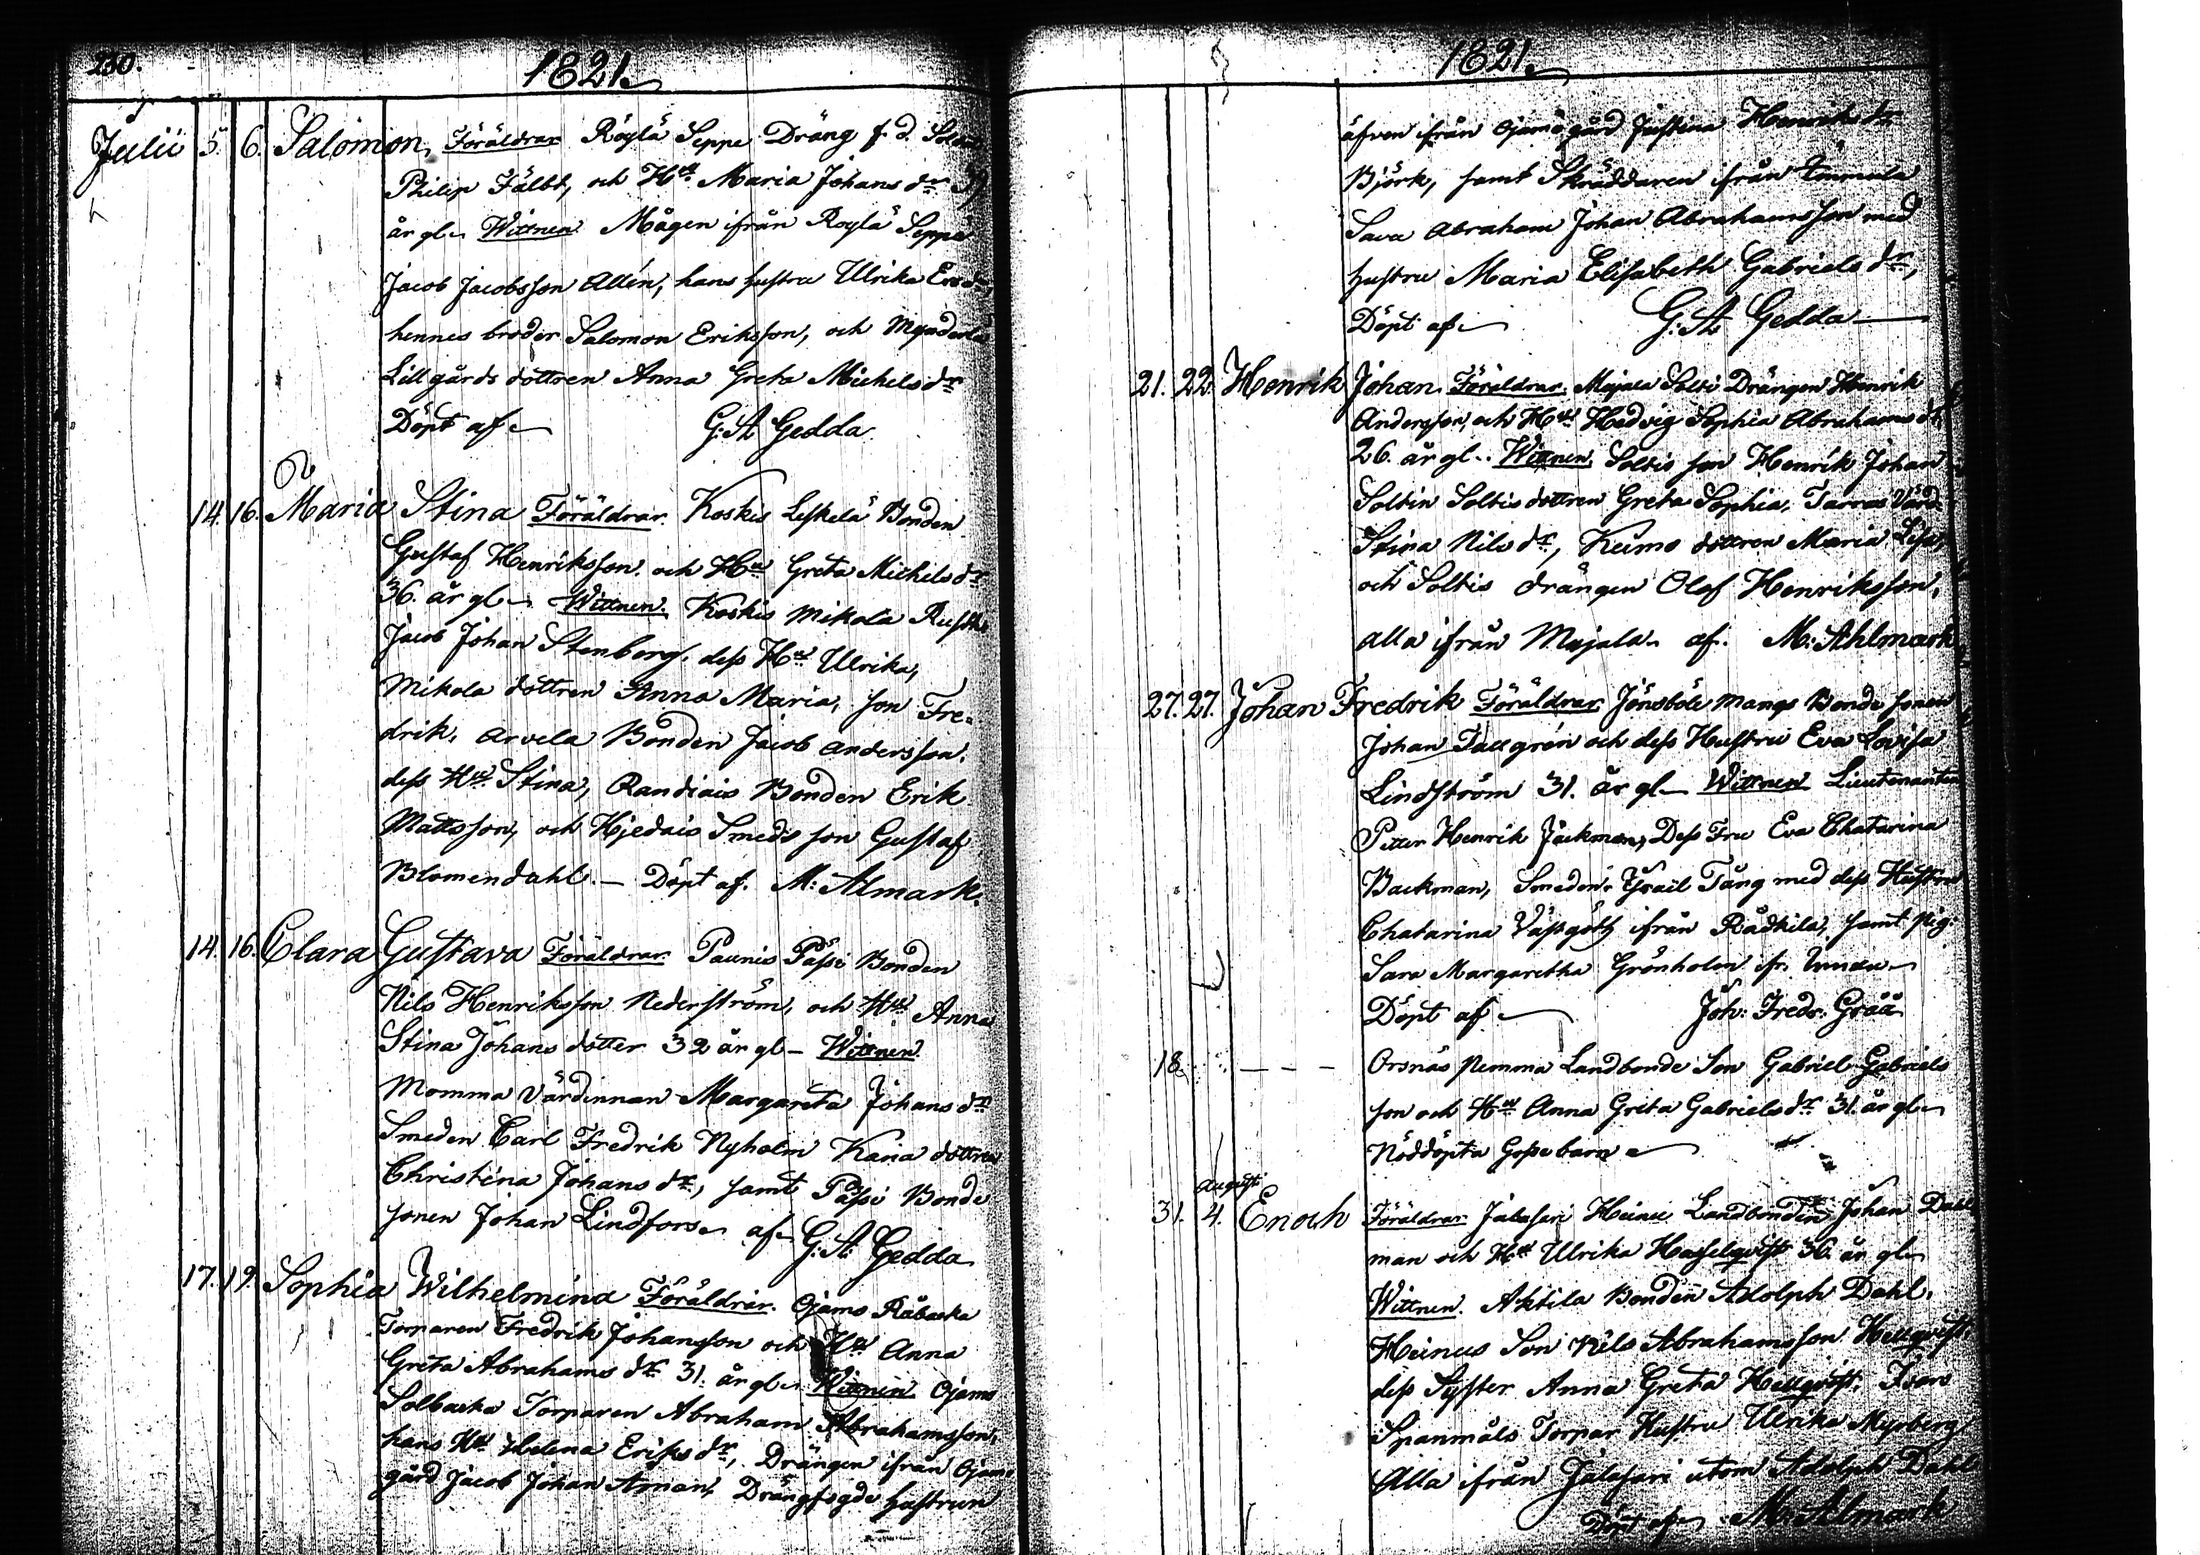 230.
1821.
Julii 5. 6. Salomon, Föräldrar Röylä Seppe Dräng f. d. Soldat
Philip Fälbt, och H:ns Maria Johans dr
år gl. Wittnen Mågen ifrån Roylä Seppä
Jacob Jacobsson Allén, hans hustru Ulrika Ersdr,
hennes broder Salomon Eriksson, och Mynderlä
Lillgårds dottren Anna Greta Michels dr
Döpt af G: A: Gedda
14. 16. Maria Stina Föräldrar. Koskis Leskelä Bonden
Gustaf Henriksson och H:u Greta Michels dr
36. år gl. Wittnen. Koskis Mikola
Jacob Johan Stenberg, dess H:u Ulrika,
Mikola dottren Anna Maria, son Fre-
drik, Arvela Bonden Jacob Andersson,
dess H:u Stina, Randiais Bonden Erik
Mattsson, och Hjedais Smeds son Gustaf
Blomendahl. — Döpt af. M: Almark.
14. 16. Clara Gustava Föräldrar. Paunis Pässi Bonden
Nils Henriksson Nederström, och H:u Anna
Stina Johans dotter 32 år gl — Wittnen
Momma Värdinnan Margareta Johans dr
Smeden Carl Fredrik Nyholm Karia dottren
Christina Johans dr, samt Pässi Bonde
sonen Johan Lindfors af G: A: Gedda
17. 19. Sophia Wilhelmina Föräldrar. Ojamo Råbacka
Torparen Fredrik Johansson och H:u Anna
Greta Abrahams dr 31. år gl. Wittnen Ojamo
Solbacka Torparen Abraham Abrahamsson,
hans H:u Helena Eriks dr, Drängen ifrån Ojamo
gård Jacob Johan Aman, Drängfogde hustrun
1821.
äfven ifrån Ojamo gård Justina Henriks dr
Björk, samt Skräddaren ifrån
Sava Abraham Johan Abrahamsson med
hustru Maria Elisabeth Gabriels dr,
Döpt af G: A: Gedda
21. 22. Henrik Johan. Föräldrar. Majala Soltis Drängen Henrik
Andersson, och H:u Hedvig Sophia Abrahams dr
26. år gl. Wittnen. Soltis son Henrik Johan
Soltin Soltis dottren Greta Sophia, Tarras Värd.
Stina Nils dr, Keimo dottren Maria Lisa,
och Soltis drängen Olof Henriksson,
alla ifrån Majala. af. M: Ahlmark
27. 27. Johan Fredrik Föräldrar Jönsböle Mangs Bonde sonen
Johan Tallgrén och dess Hustru Eva Lovisa
Lindström 31. år gl — Wittnen Lieutenanten
Petter Henrik Jäckman, Dess Fru Eva Chatarina
Backman, Smeden Israël Tång med dess Hustru
Chatarina ifrån Rådkila, samt Pig.
Sara Margaretha Grönholm ifr.
Döpt af Joh: Fredr: Gråå
18. - - - Orsnäs Nemma Landbonde Son Gabriel Gabriels
son och H:u Anna Greta Gabriels dr 31. år gl
Nöddöpta Gosse barn
Augusti
31. 4. Enoch Föräldrar Jalassari Heinu Landbonden Johan Dahl
man och H:u Ulrika Hasselqvist 36. år gl
Wittnen. Ahtila Bonden Adolph Dahl.
Heinus Son Nils Abrahamsson Hellqvist,
dess Syster Anna Greta Hellqvist, Isars
Spanmåls Torpar Hustru Ulrika Myrberg
Alla ifrån Jalasari utom Adolph Dahl
Döpt af M: Almark